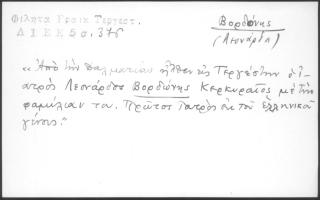 Φίλητα Γραικ Τεργεστ.
Δ Ι Ε Ε 5ο. 376
Βορδώνης
(Λεονάρδο)
«Ἀπὸ τὴν Δαλματίαν ἦλθεν εἰς Τεργέστην ὁ ἰ-
ατρὸς Λεονάρδος Βορδώνης Κερκυραῖος μὲ τὴν
φαμίλιαν του. Πρῶτος ἰατρὸς ἐκ τοῦ ἑλληνικοῦ
γένους."